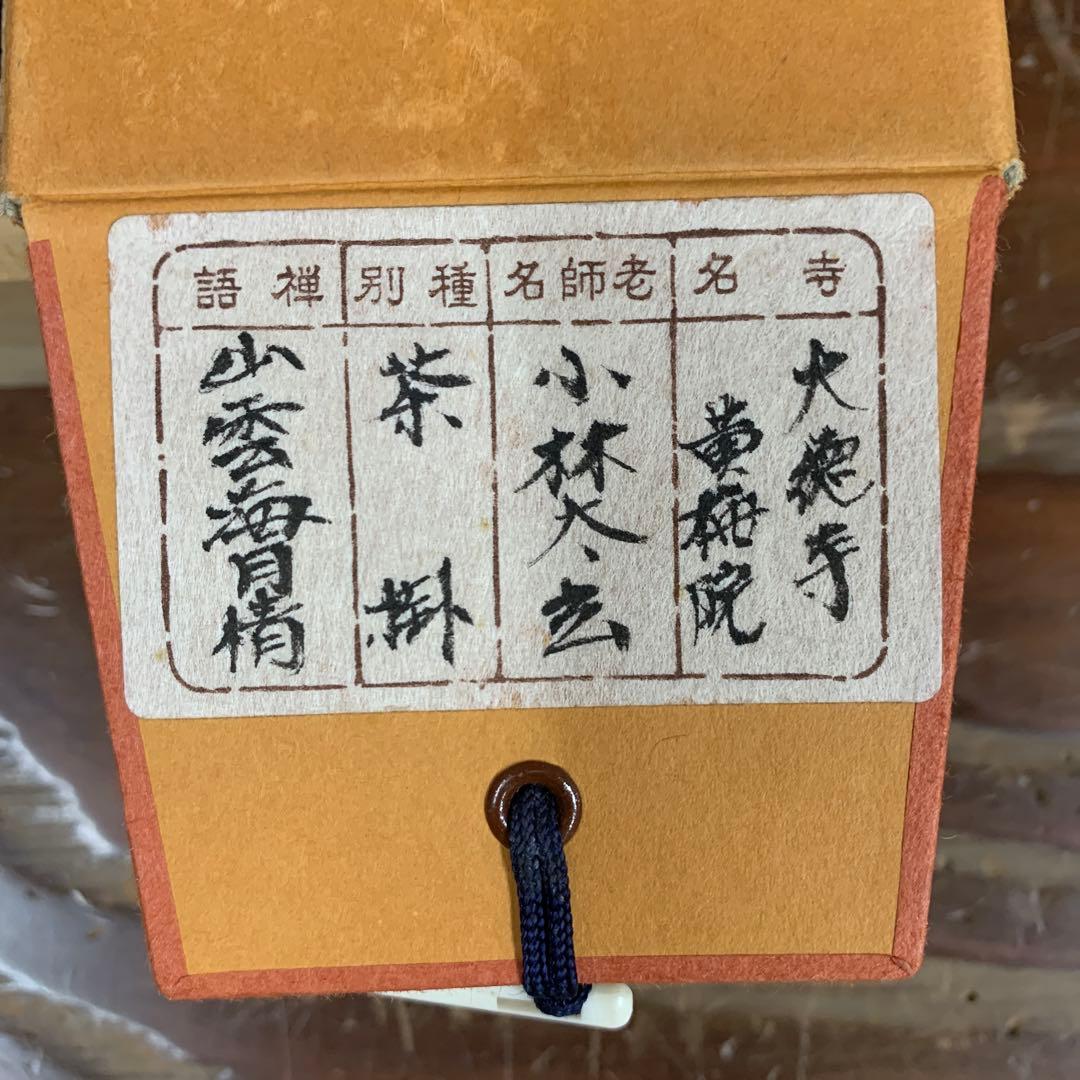 寺名
大徳寺
黄梅院
老師名
小林太玄
種別
茶掛
禅語
山雲海月情